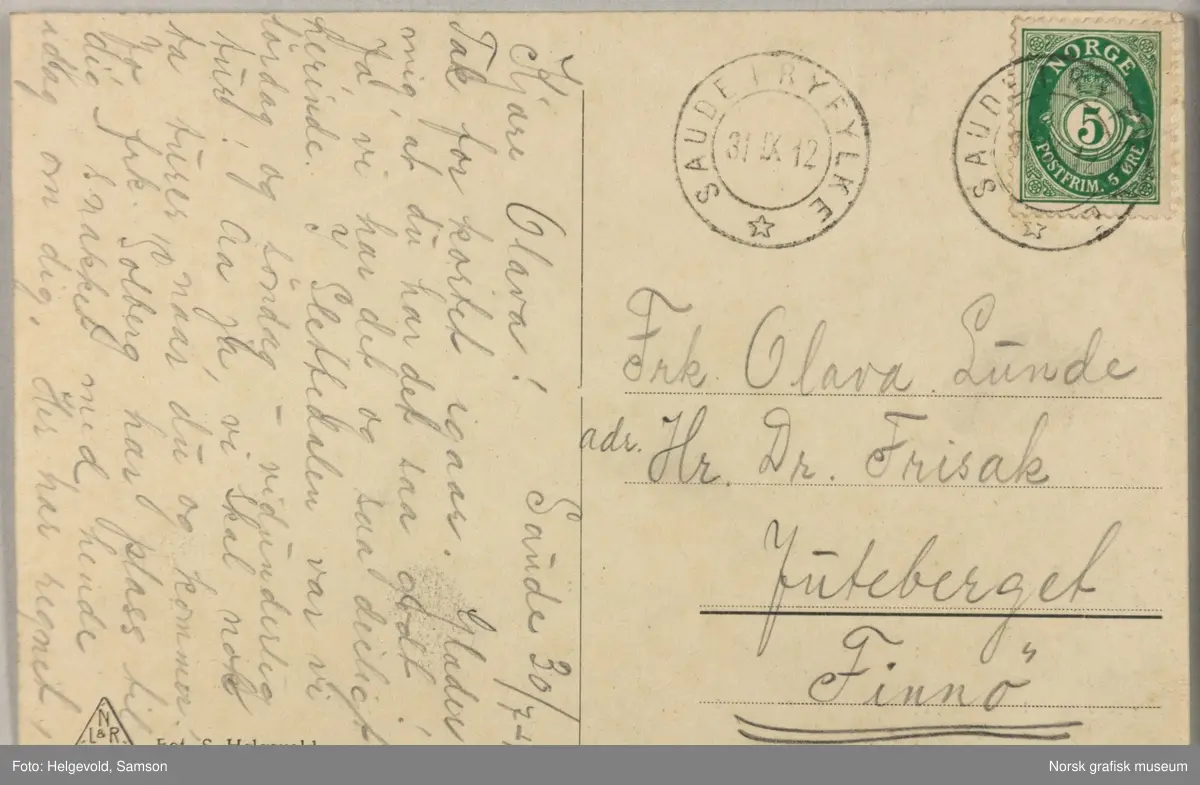 Saude 30/7-
Kjære Olava!
Tak for kortet igaar. Glæder
mig, at du har det saa godt!
Ja, vi har det og saa deiligt
herinde. I Slettedalen var vi
lördag og söndag – vidunderlig
tur! Aa ja, vi skal nok
ta turer naar du og kommer.
Jo frk. Solberg har plass til
dig, snakket med hende
idag om dig. Her har regnet,
N
L&R
Fot. S. Helgevold
SAUDE I RYFYLKE
31 IX 12
SAUDE I RYFYLKE
NORGE
5
POSTFRIM. 5 ØRE
Frk. Olava Lunde
adr. Hr. Dr. Frisak
Juteberget
Finnö
Foto: Helgevold, Samson
Norsk grafisk museum